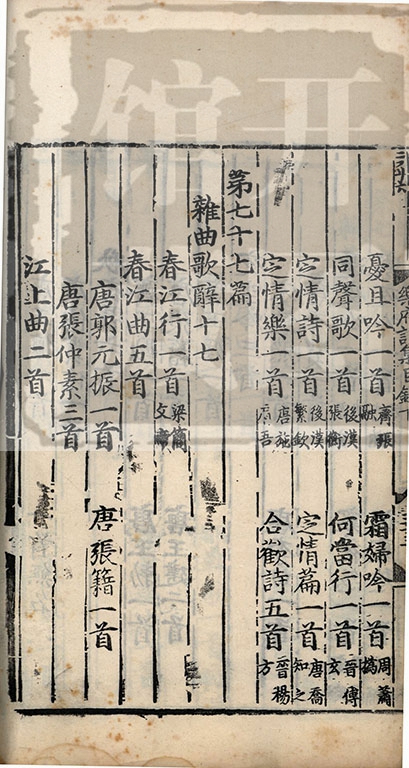 憂且吟一首 齊張融 霜婦吟一首 周蕭撝
同聲歌一首 後漢張衡 何當行一首 晉傅玄
定情詩一首 後漢繁欽 定情篇一首 唐喬知之
定情樂一首 唐施肩吾 合歡詩五首 晉楊方
第七十七篇
雜曲歌辭十七
春江行一首 梁簡文帝
春江曲五首
唐郭元振一首 唐張籍一首
唐張仲素三首
江上曲二首